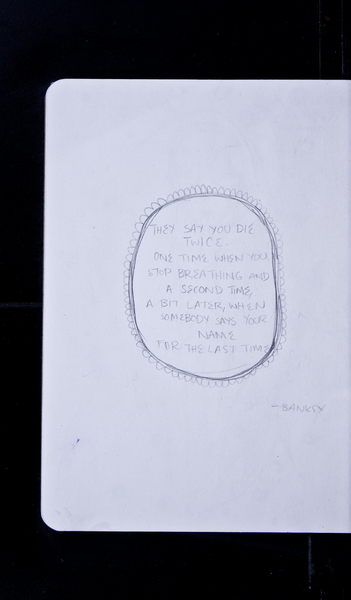 THEY SAY YOU DIE
TWICE.
ONE TIME WHEN YOU
STOP BREATHING AND
A SECOND TIME,
A BIT LATER, WHEN
SOMEBODY SAYS YOUR
NAME
FOR THE LAST TIME
- BANKSY